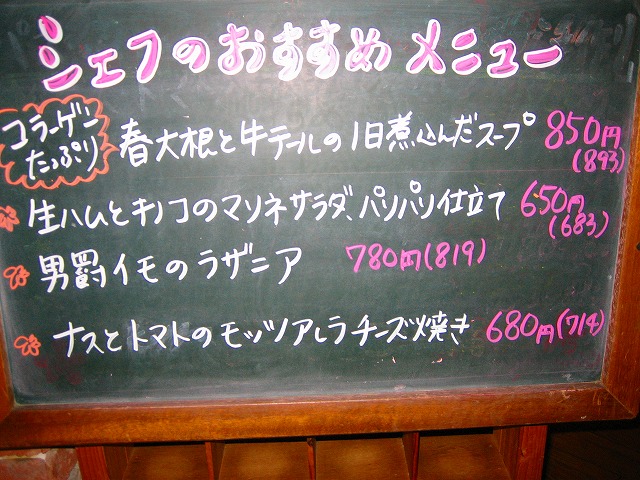 シェフのおすすめメニュー
コラーゲン
たっぷり
春大根と牛テールの1日煮込んだスープ 850円
(893)
生ハムとキノコのマリネサラダ、パリパリ仕立て 650円
(683)
男爵イモのラザニア 780円(819)
ナスとトマトのモッツアレラチーズ焼き 680円(714)